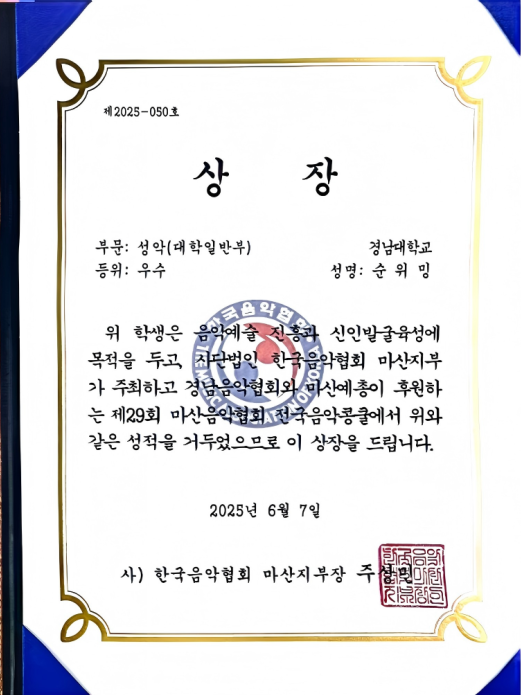 제2025-050호
상 장
부문: 성악(대학일반부) 경남대학교
등위: 우수 성명: 순위밍
위 학생은 음악예술 진흥과 신인발굴육성에
목적을 두고, 사단법인 한국음악협회 마산지부
가 주최하고 경남음악협회와 마산예총이 후원하
는 제29회 마산음악협회 전국음악콩쿨에서 위와
같은 성적을 거두었으므로 이 상장을 드립니다.
2025년 6월 7일
사) 한국음악협회 마산지부장 주